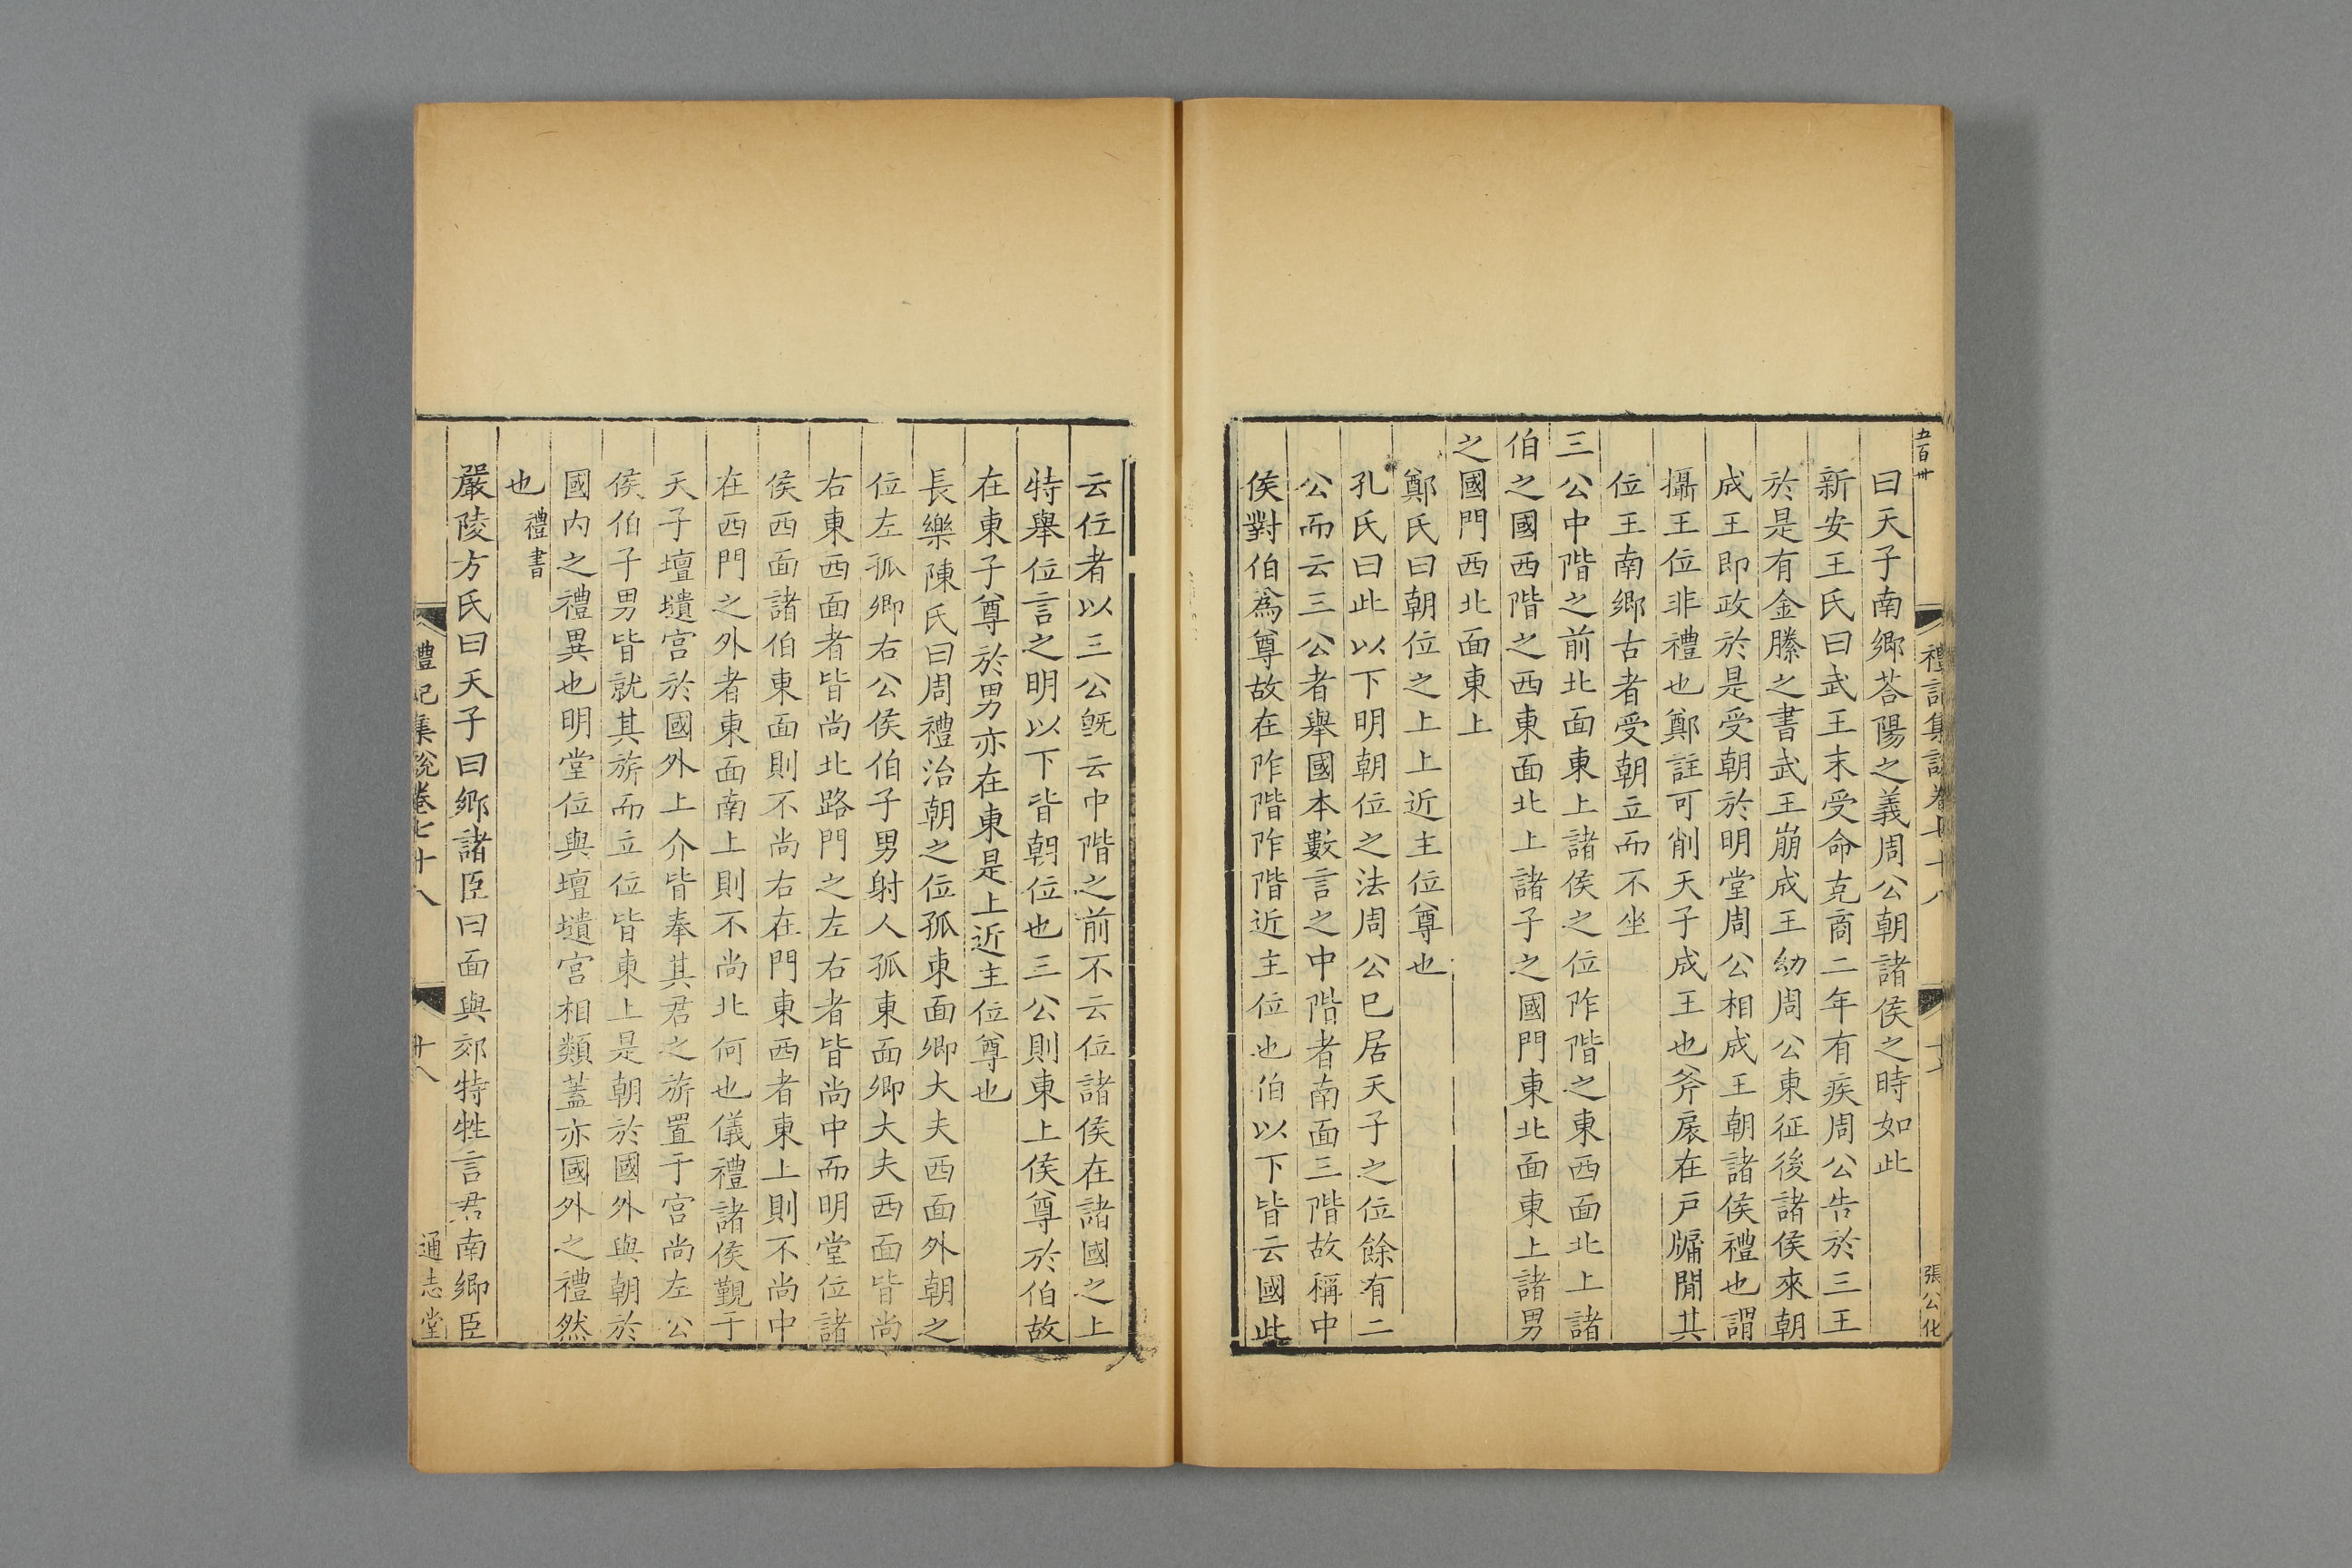 五百卅
禮記集說卷七十八
張公化
曰天子南鄉荅陽之義周公朝諸侯之時如此
新安王氏曰武王末受命克商二年有疾周公告於三王
於是有金縢之書武王崩成王幼周公東征後諸侯來朝
成王即政於是受朝於明堂周公相成王朝諸侯禮也謂
攝王位非禮也鄭註可削天子成王也斧扆在戶牖閒其
位王南鄉古者受朝立而不坐
三公中階之前北面東上諸侯之位阼階之東西面北上諸
伯之國西階之西東面北上諸子之國門東北面東上諸男
之國門西北面東上
鄭氏曰朝位之上上近主位尊也
孔氏曰此以下明朝位之法周公巳居天子之位餘有二
公而云三公者舉國本數言之中階者南面三階故稱中
侯對伯爲尊故在阼階阼階近主位也伯以下皆云國此
云位者以三公旣云中階之前不云位諸侯在諸國之上
特舉位言之明以下皆朝位也三公則東上侯尊於伯故
在東子尊於男亦在東是上近主位尊也
長樂陳氏曰周禮治朝之位孤東面卿大夫西面外朝之
位左孤卿右公侯伯子男射人孤東面卿大夫西面皆尚
右東西面者皆尚北路門之左右者皆尚中而明堂位諸
侯西面諸伯東面則不尚右在門東西者東上則不尚中
在西門之外者東面南上則不尚北何也儀禮諸侯覲于
天子壇壝宮於國外上介皆奉其君之旂置于宮尚左公
侯伯子男皆就其旂而立位皆東上是朝於國外與朝於
國內之禮異也明堂位與壇壝宮相類蓋亦國外之禮然
也禮書
嚴陵方氏曰天子曰鄉諸臣曰面與郊特牲言君南鄉臣
禮記集說卷七十八
十八
通志堂